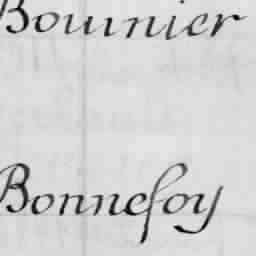 Bouinier
Bonnefoy